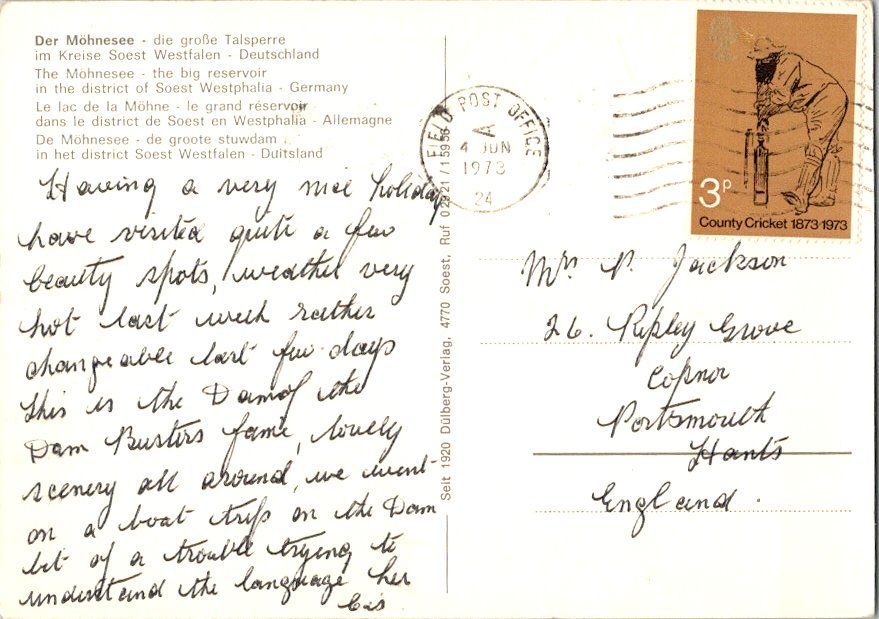 Der Möhnesee - die große Talsperre
im Kreise Soest Westfalen - Deutschland
The Möhnesee - the big reservoir
in the district of Soest Westphalia - Germany
Le lac de la Möhne - le grand réservoir
dans le district de Soest en Westphalia - Allemagne
De Möhnesee - de groote stuwdam
in het district Soest Westfalen - Duitsland
Having a very nice holiday
have visited quite a few
beauty spots, weather very
hot last week rather
changeable last few days
this is the Dam of the
Dam Busters fame, lovely
scenery all around, we went
on a boat trip on the Dam
bit of a trouble trying to
understand the language her
Cis
Seit 1920 Dülberg-Verlag, 4770 Soest, Ruf 02921/15956
FIELD POST OFFICE
A
4 JUN
1973
24
3p
County Cricket 1873-1973
Mrs P. Jackson
26. Ripley Grove
Copnor
Portsmouth
Hants
England.